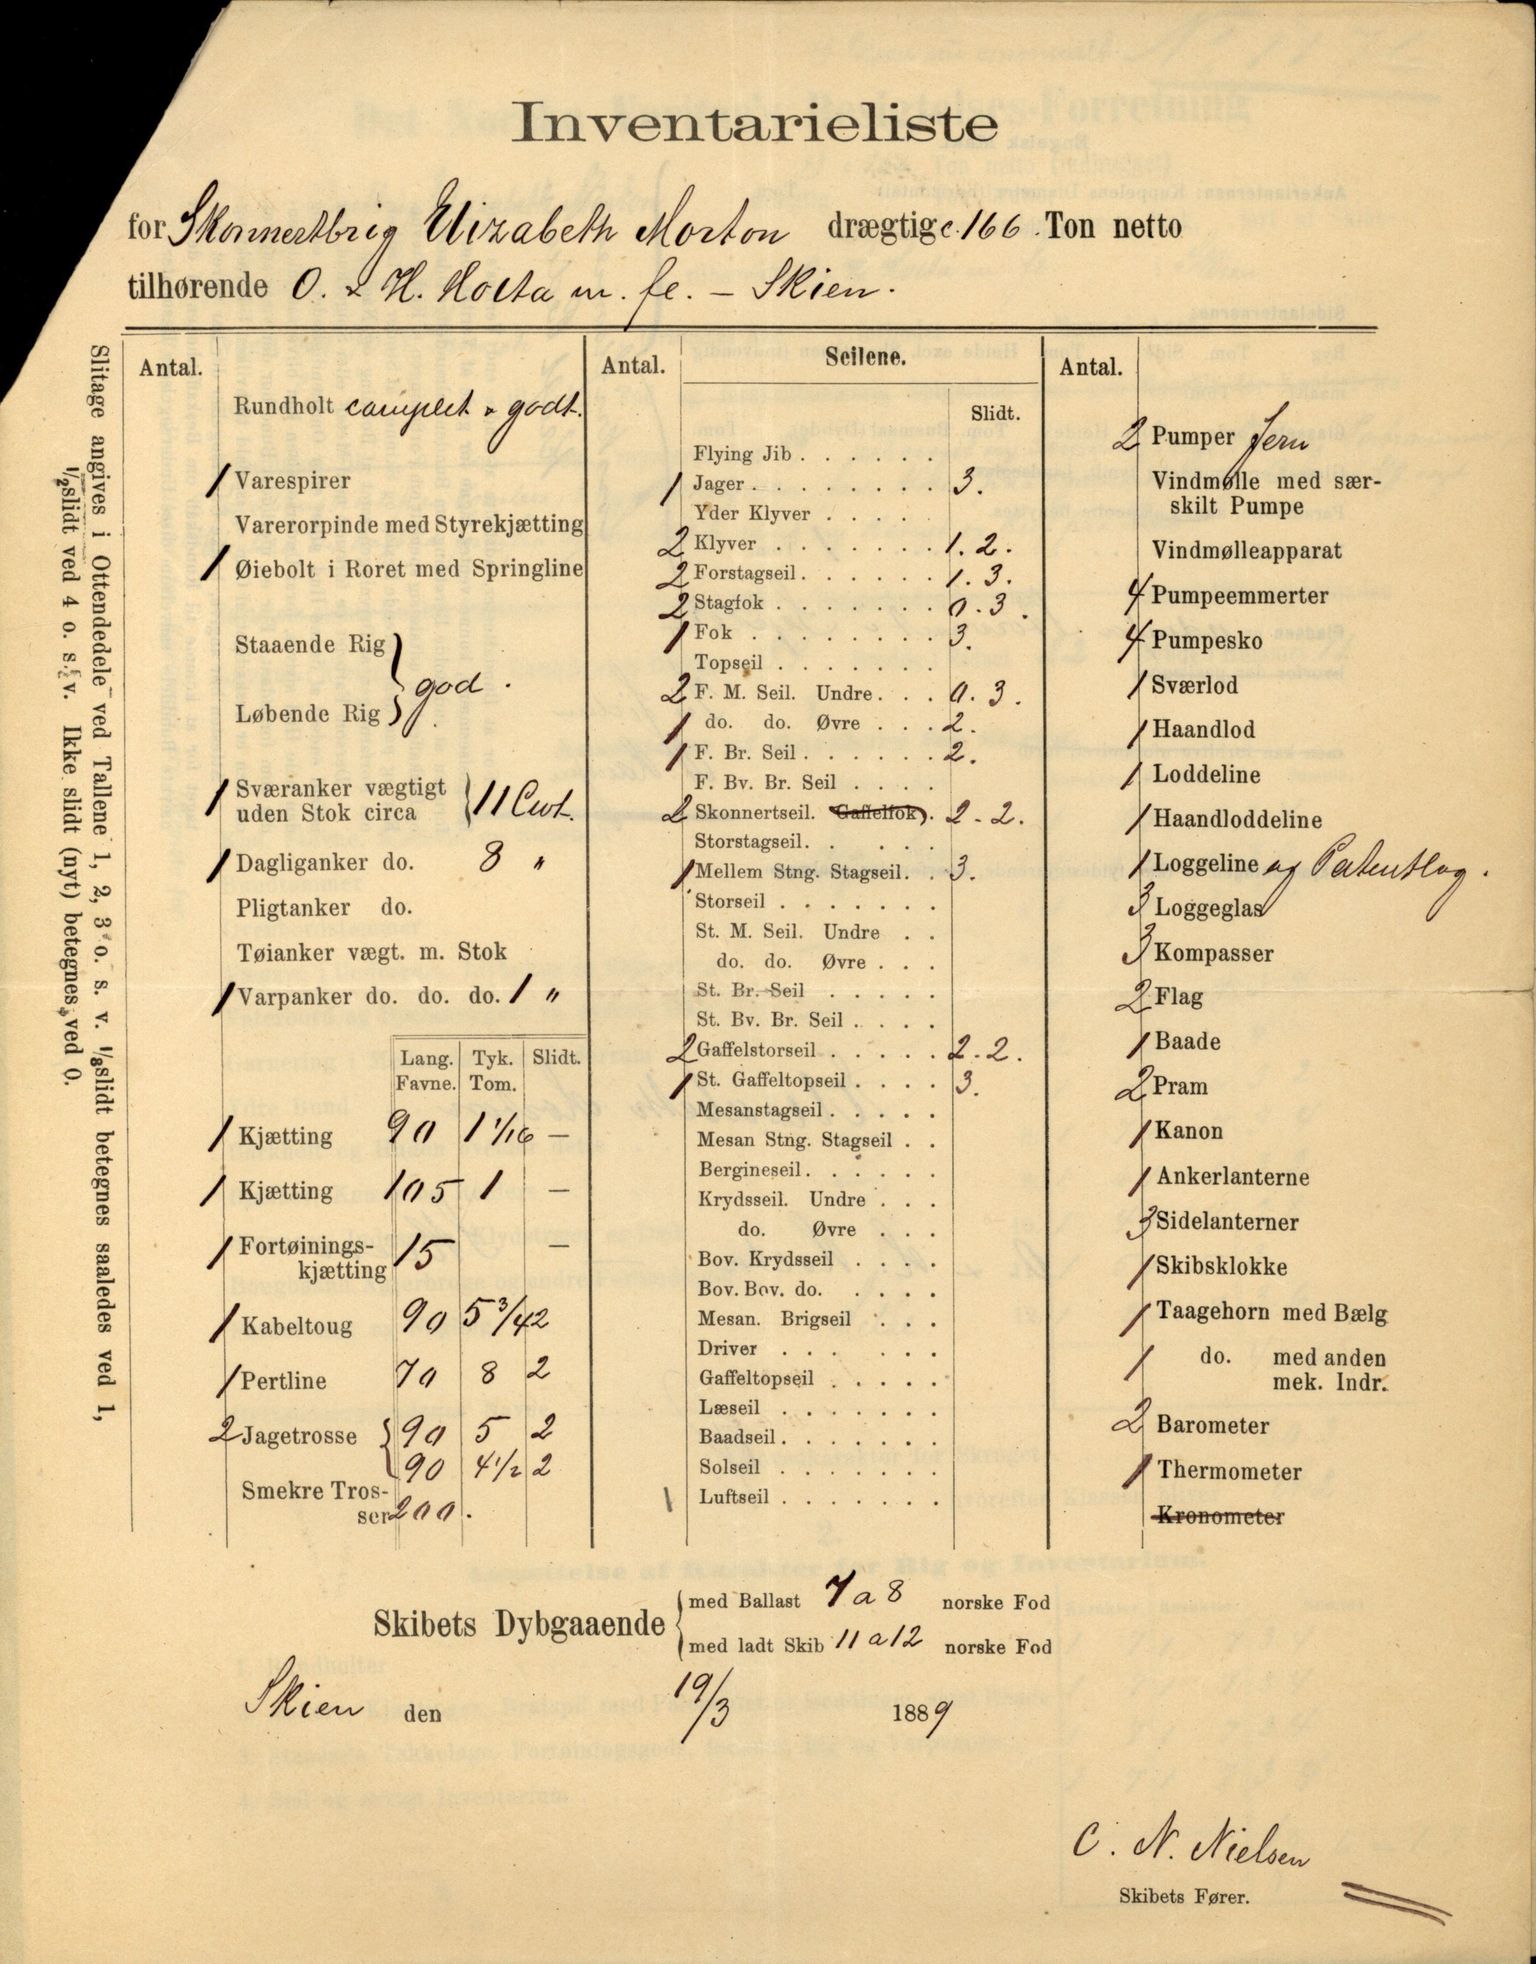 Inventarieliste
for Skonnertbrig Elizabeth Morton drægtig c. 166. Ton netto
tilhørende O. & H. Holta m. fl. – Skien.
Slitage angives i Ottendedele ved Tallene 1, 2, 3 o. s. v. 1/8 slidt betegnes saaledes ved 1,
1/2 slidt ved 4 o. s. v. Ikke slidt (nyt) betegnes ved 0.
Antal.
Rundholt complet & godt.
1 Varespirer
Varerorpinde med Styrekjætting
1 Øiebolt i Roret med Springline
Staaende Rig
god.
Løbende Rig
1 Sværanker vægtigt
uden Stok circa 11 Cwt.
1 Dagliganker do. 8 "
Pligtanker do.
Tøianker vægt. m. Stok
1 Varpanker do. do. do. 1 "
Lang. Tyk. Slidt.
Favne. Tom.
1 Kjætting 90 1 1/16 —
1 Kjætting 105 1 —
1 Fortøinings-
kjætting 15 —
1 Kabeltoug 90 5 3/4 2
1 Pertline 70 8 2
2 Jagetrosse 90 5 2
90 4 1/2 2
Smekre Tros-
ser 200.
Antal. Seilene.
Slidt.
Flying Jib . . . . . .
1 Jager . . . . . . . . 3.
Yder Klyver . . . .
2 Klyver . . . . . . . 1. 2.
2 Forstagseil . . . . . . 1. 3.
2 Stagfok . . . . . . . 0. 3.
1 Fok . . . . . . . . 3.
Topseil . . . . . . .
2 F. M. Seil. Undre . . . 0. 3.
1 do. do. Øvre . . . 2.
1 F. Br. Seil . . . . . . 2.
F. Bv. Br. Seil . . . .
2 Skonnertseil. (Gaffelfok) . 2. 2.
Storstagseil. . . . .
1 Mellem Stng. Stagseil. . 3.
Storseil . . . . . . .
St. M. Seil. Undre . .
do. do. Øvre . . .
St. Br. Seil . . . . .
St. Bv. Br. Seil . . . .
2 Gaffelstorseil . . . . . 2. 2.
1 St. Gaffeltopseil . . . . 3.
Mesanstagseil . . . . .
Mesan Stng. Stagseil . .
Bergineseil . . . . . .
Krydsseil. Undre . . .
do. Øvre . . .
Bov. Krydsseil . . . .
Bov. Bov. do. . . . .
Mesan. Brigseil . . .
Driver . . . . . .
Gaffeltopseil . . . . .
Læseil . . . . . . .
Baadseil . . . . . . .
Solseil . . . . . . .
1 Luftseil . . . . . . .
Antal.
2 Pumper Jern
Vindmølle med sær-
skilt Pumpe
Vindmølleapparat
4 Pumpeemmerter
4 Pumpesko
1 Sværlod
1 Haandlod
1 Loddeline
1 Haandloddeline
1 Loggeline og Patentlog.
3 Loggeglas
3 Kompasser
2 Flag
1 Baade
2 Pram
1 Kanon
1 Ankerlanterne
3 Sidelanterner
1 Skibsklokke
1 Taagehorn med Bælg
1 do. med anden
mek. Indr.
2 Barometer
1 Thermometer
Kronometer
Skibets Dybgaaende
med Ballast 7 a 8 norske Fod
med ladt Skib 11 a 12 norske Fod
Skien den 19/3 1889
C. N. Nielsen
Skibets Fører.